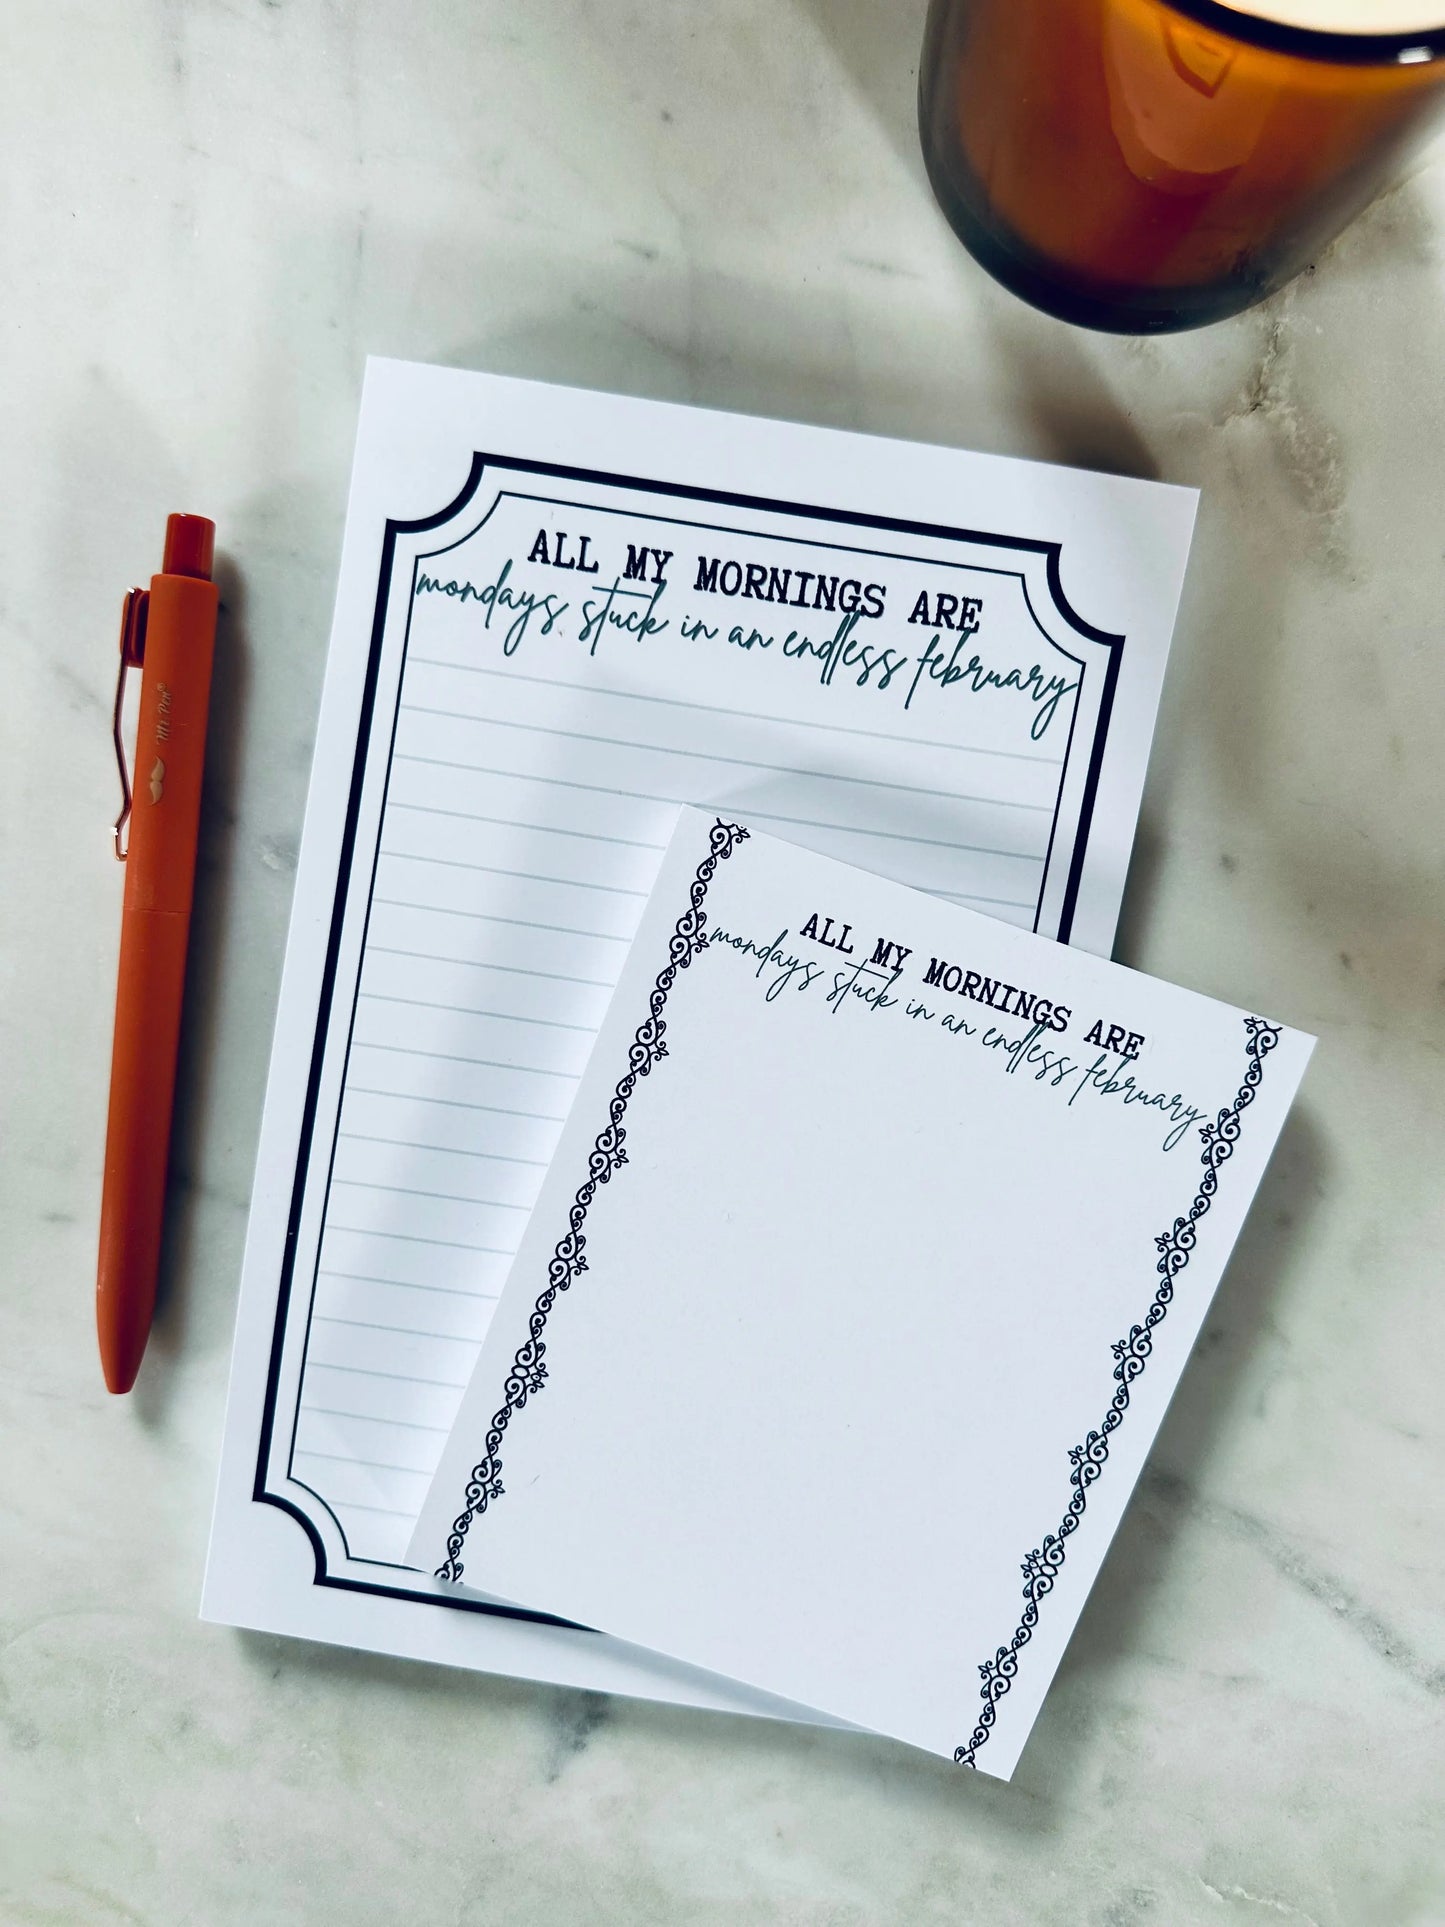 ALL MY MORNINGS ARE
mondays stuck in an endless february
Mr. Pen®
ALL MY MORNINGS ARE
mondays stuck in an endless february